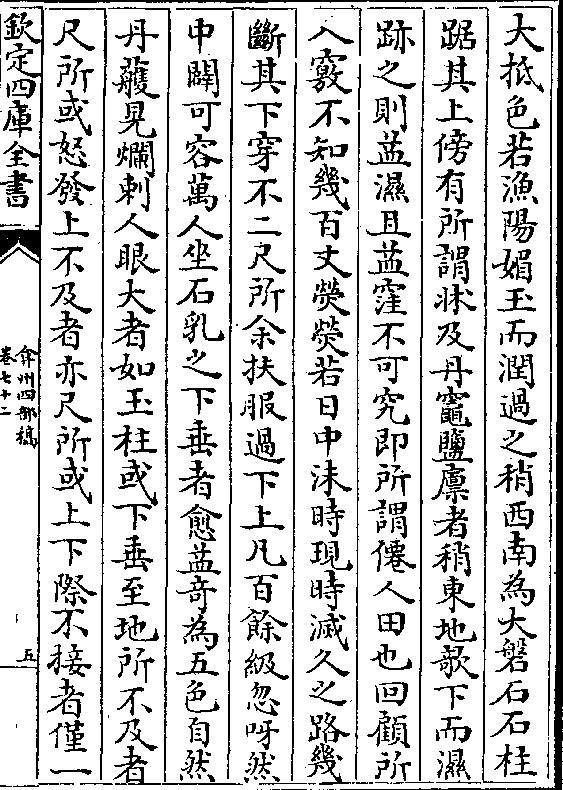 大抵色若漁陽媚玉而潤過之稍西南為大磐石石柱
踞其上傍有所謂牀及丹竈鹽廪者稍東地欹下而濕
跡之則葢濕且葢窪不可究即所謂僊人田也回顧所
入竅不知幾百丈熒熒若日中沬時現時滅久之路幾
斷其下穿不二尺所余扶服過下上凡百餘級忽呀然
中闢可容萬人坐石乳之下垂者愈葢竒為五色自然
丹雘晃爛刺人眼大者如玉柱或下垂至地所不及者
尺所或怒發上不及者亦尺所或上下際不接者僅一
欽定四庫全書
弇州四部稿
卷七十二
五